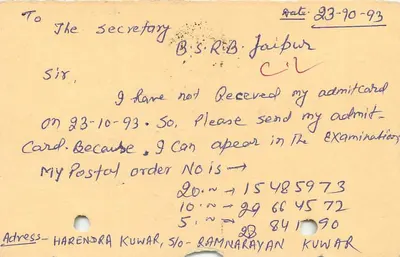 To
Date. 23-10-93
The Secretary
B.S.R.B. Jaipur
Sir,
I have not Receved my admitcard
on 23-10-93. So, Please send my admit-
Card. Because, I Can apear in The Examination,
My Postal order No is →
20.~ → 15485973
10.~ → 29 664572
5.~ → 841 90
Adress- HARENDRA KUWAR, S/o- RAMNARAYAN KUWAR